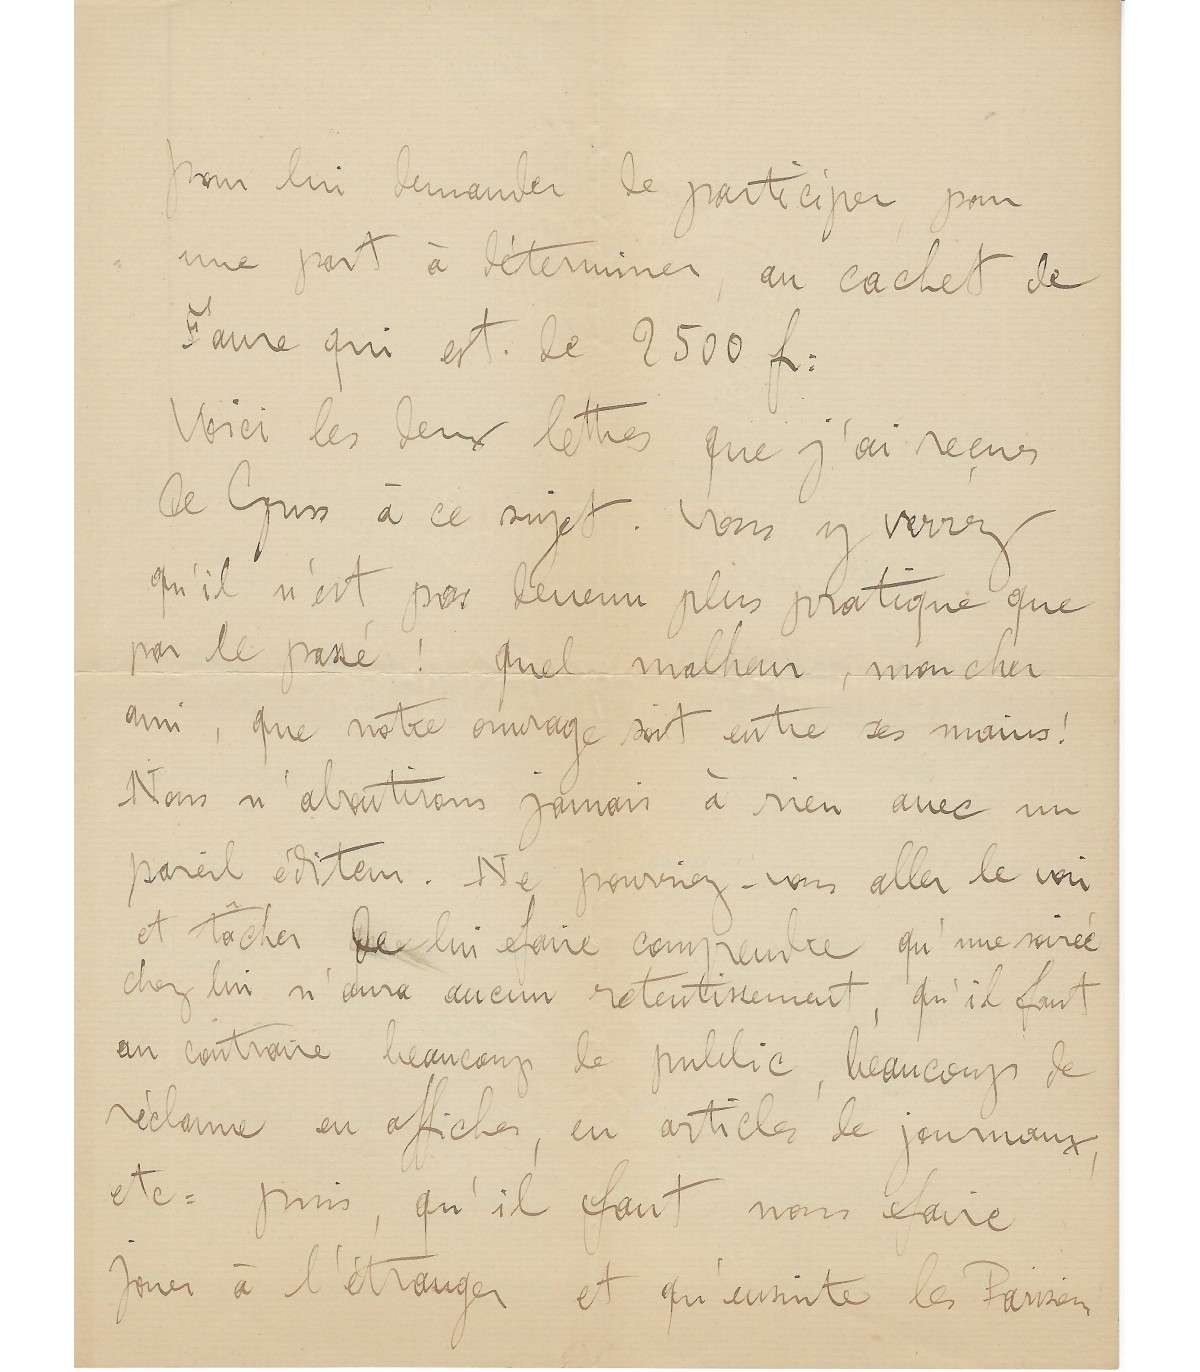 pour lui demander de participer, pour
une part à déterminer, au cachet de
Faure qui est de 2500 fr=
Voici les deux lettres que j'ai reçues
de Gruss à ce sujet. Vous y verrez
qu'il n'est pas devenu plus pratique que
par le passé ! quel malheur, mon cher
ami, que notre ouvrage soit entre ses mains !
Nous n'aboutirons jamais à rien avec un
pareil éditeur. Ne pourriez-vous aller le voir
et tâcher de lui faire comprendre qu'une soirée
chez lui n'aura aucun retentissement, qu'il faut
au contraire beaucoup de public, beaucoup de
réclame en affiches, en articles de journaux,
etc= puis, qu'il faut nous faire
jouer à l'étranger et qu'ensuite les Parisiens